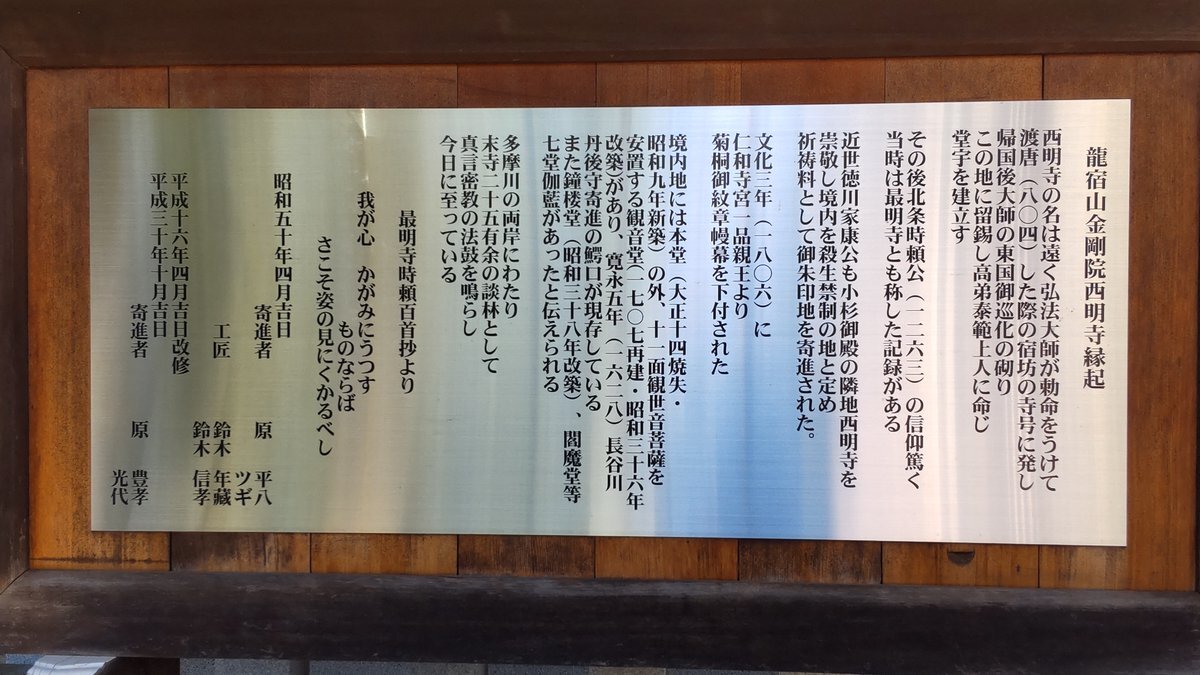 龍宿山金剛院西明寺縁起
西明寺の名は遠く弘法大師が勅命をうけて
渡唐（八〇四）した際の宿坊の寺号に発し
帰国後大師の東国御巡化の砌り
この地に留錫し高弟泰範上人に命じ
堂宇を建立す
その後北条時頼公（一二六三）の信仰篤く
当時は最明寺とも称した記録がある
近世徳川家康公も小杉御殿の隣地西明寺を
崇敬し境内を殺生禁制の地と定め
祈祷料として御朱印地を寄進された。
文化三年（一八〇六）に
仁和寺宮一品親王より
菊桐御紋章幔幕を下付された
境内地には本堂（大正十四焼失・
昭和九年新築）の外、十一面観世音菩薩を
安置する観音堂（一七〇七再建・昭和三十六年
改築)があり、寛永五年（一六二八）長谷川
丹後守寄進の鰐口が現存している
また鐘楼堂（昭和三十八年改築）、閻魔堂等
七堂伽藍があったと伝えられる
多摩川の両岸にわたり
末寺二十五有余の談林として
真言密教の法鼓を鳴らし
今日に至っている
最明寺時頼百首抄より
我が心　かがみにうつす
ものならば
さこそ姿の見にくかるべし
昭和五十年四月吉日
寄進者　原　平八
ツギ
工匠　鈴木　年藏
鈴木　信孝
平成十六年四月吉日改修
平成三十年十月吉日
寄進者　原　豊孝
光代